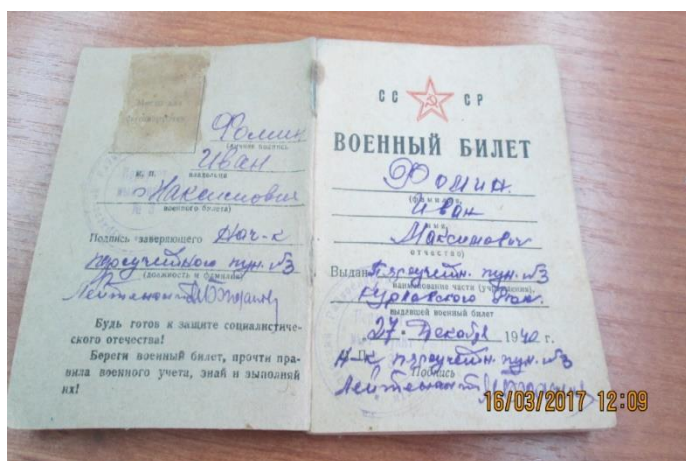 Место для
фотокарточки
Фомин
(личная подпись
Иван
М. П. владельца
Максимович
военного билета)
Подпись заверяющего Нач-к
пун. №3
(должность и фамилия)
Лейтенант
Будь готов к защите социалистиче-
ского отечества!
Береги военный билет, прочти пра-
вила военного учета, знай и выполняй
их!
СС СР
ВОЕННЫЙ БИЛЕТ
Фомин
(фамилия,
Иван
имя,
Максимович
отчество)
Выдан пун. №3
наименование части (учреждения),
выдавшей военный билет
27. Декабря 1940 г.
Н-к пун. №3
Подпись
Лейтенант
16/03/2017 12:09